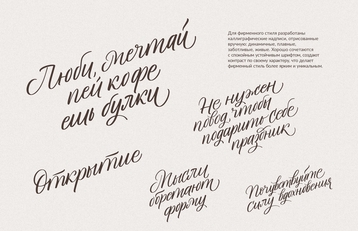 Для фирменного стиля разработаны
каллиграфические надписи, отрисованные
вручную: динамичные, плавные,
заботливые, живые. Хорошо сочетаются
с спокойным устойчивым шрифтом, создают
контраст по своему характеру, что делает
фирменный стиль более ярким и уникальным.
Люби, мечтай
пей кофе
ешь булки
Не нужен
повод, чтобы
подарить себе
праздник
Открытие
Мысли
обретают
форму
Почувствуйте
силу вдохновения